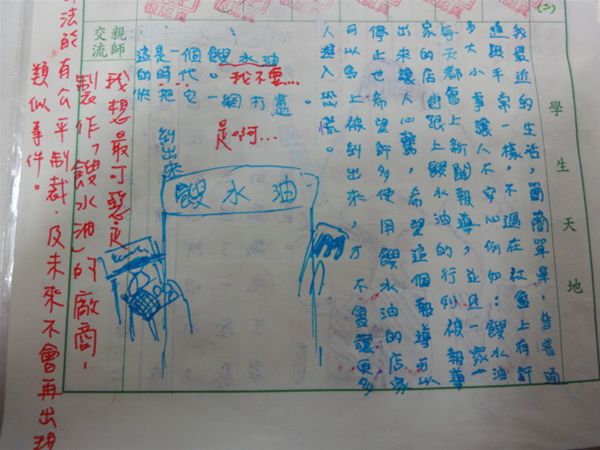 (二)
學生天地
我最近的生活，簡簡單單，普普通
通跟平常一樣，不過在社會上有許
多大小事讓人不安心例如：餿水油
每天都會上新聞報導，並且一家一
家的店都跟上餿水油的行列被報導
出來讓人心驚，希望這個報導可以
停止也希望許多使用餿水油的店家
可以馬上被糾出來，才不會讓更多
人進入恐慌。
親師交流
這是一個餿水油
的時代。
我不要...
快把它一網打盡。
糾出來
是啊...
餿水油
我想最可惡是
製作「餿水油」的廠商，
法的有公平制裁．及未來不會再出現
類似事件。